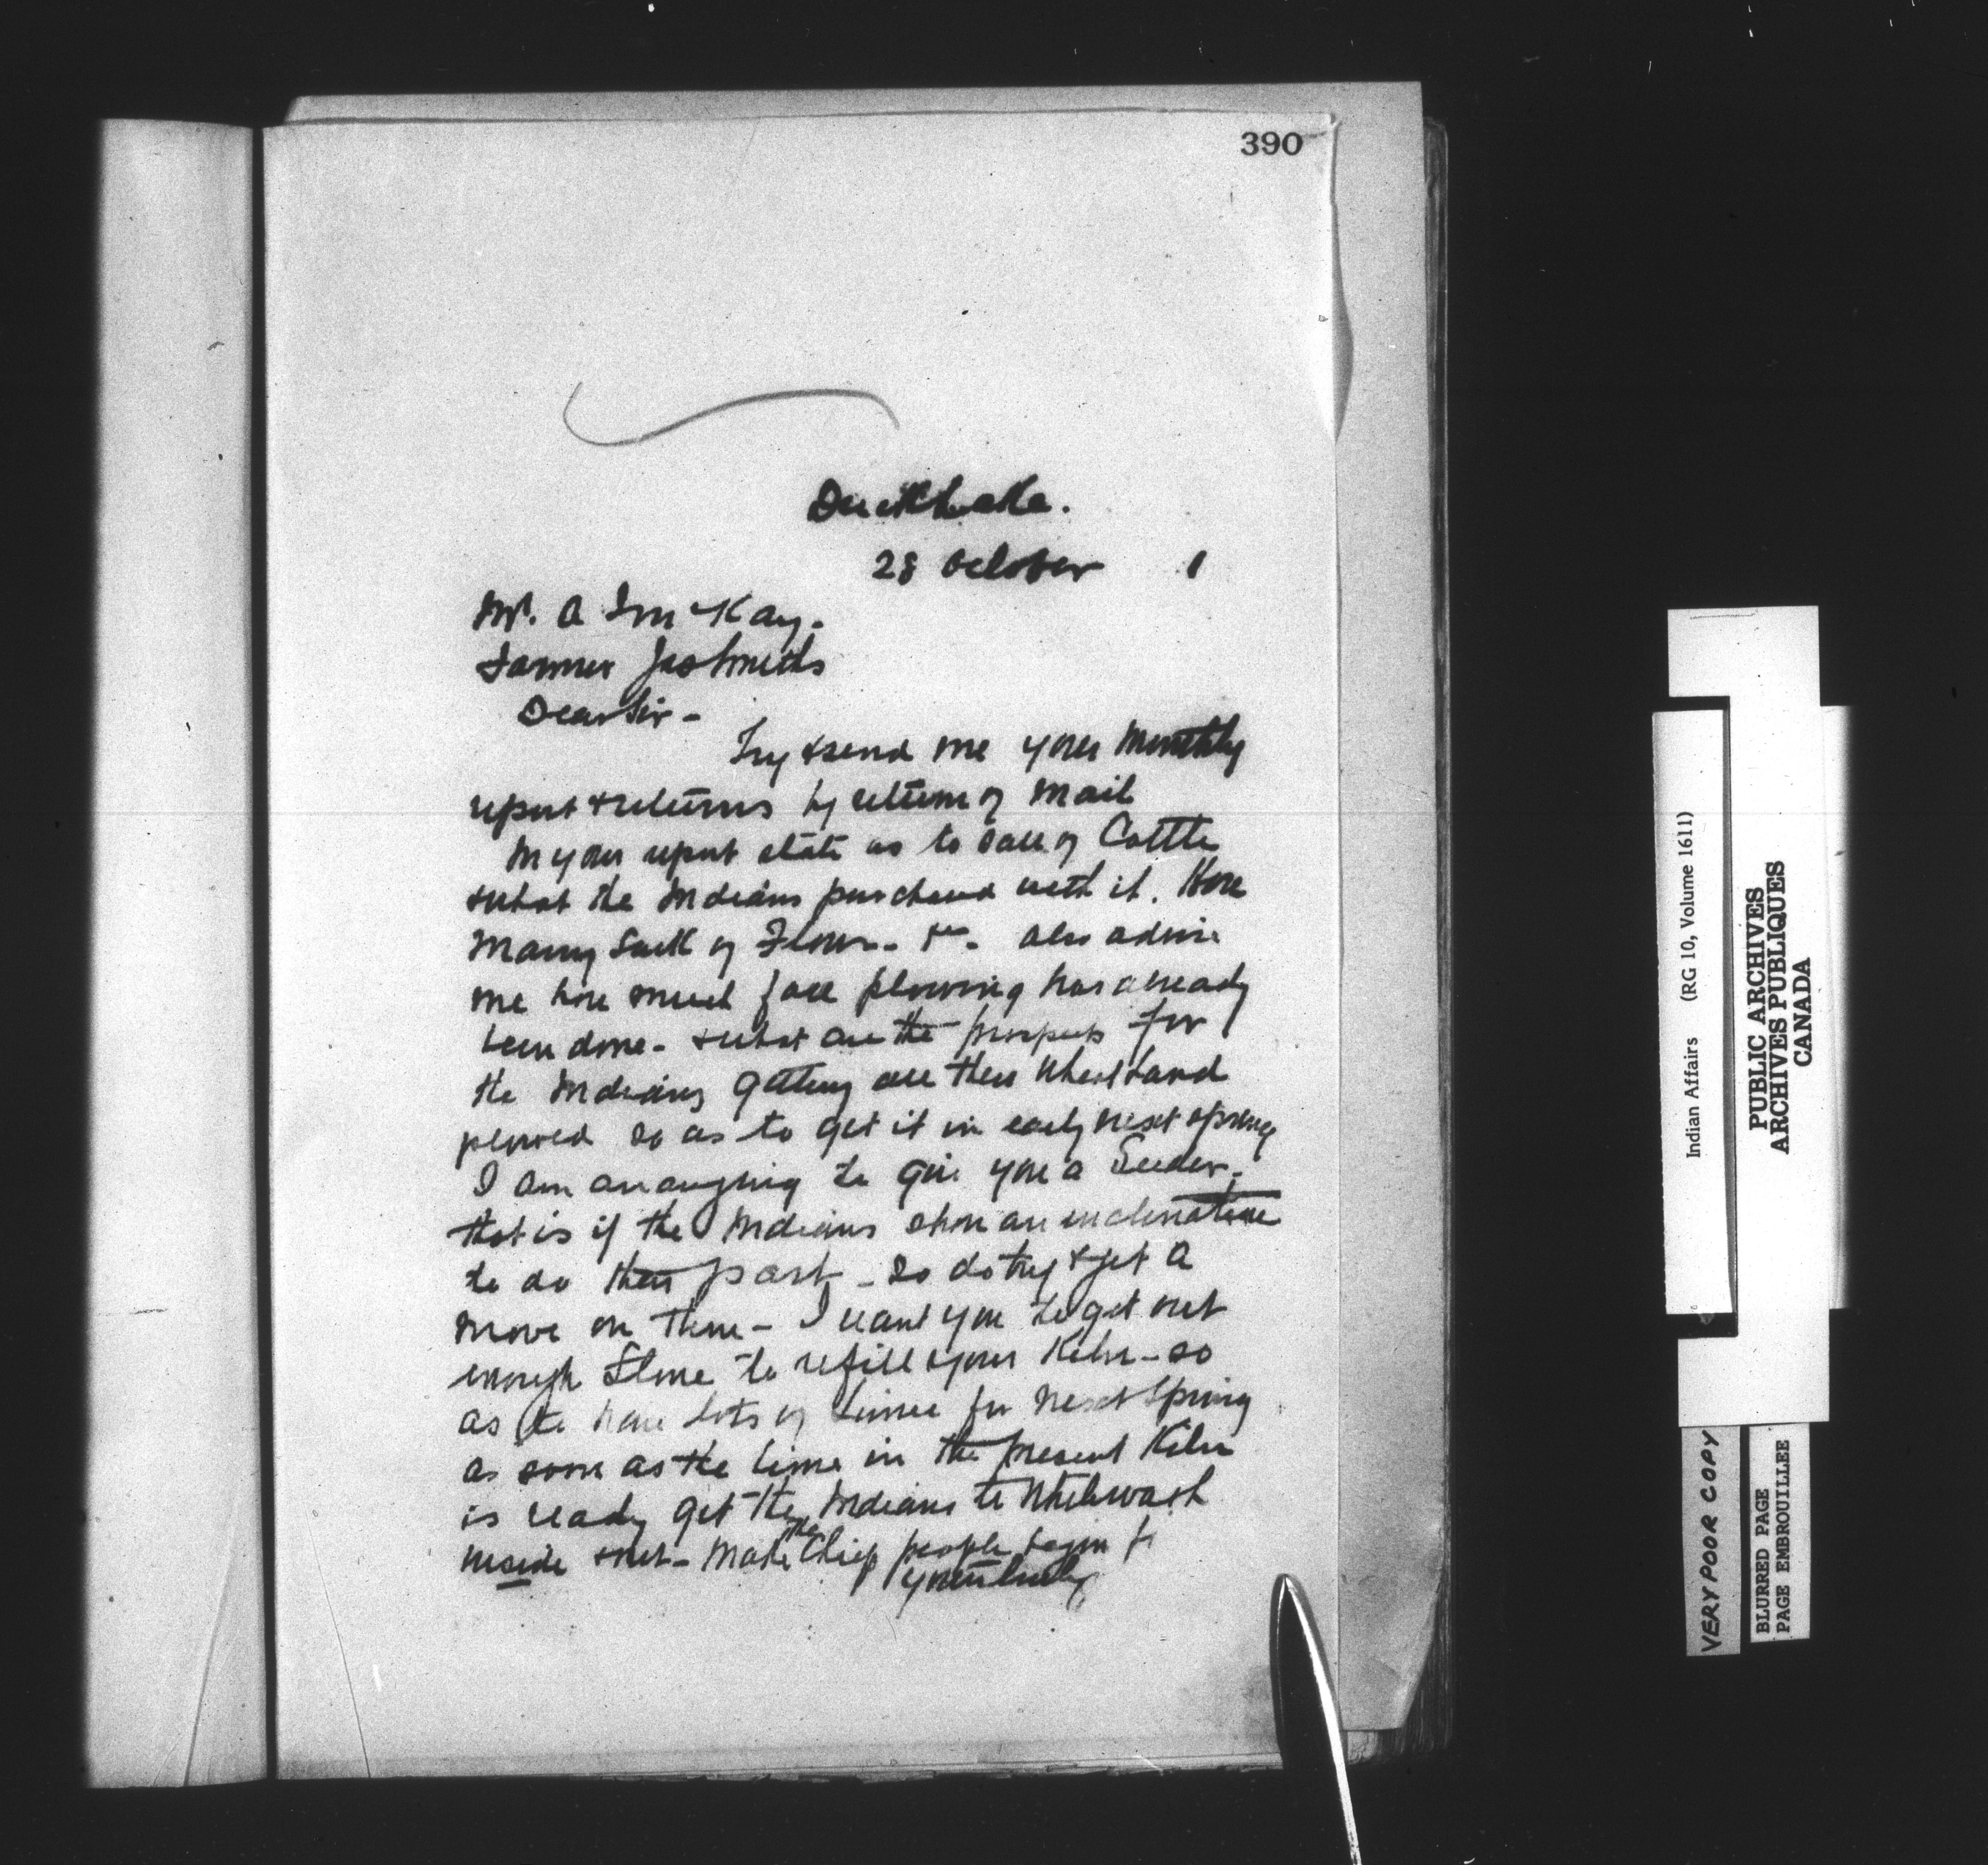 390
Duck Lake.
28 October 1
Mr. A J McKay.
Farmer Jas Smiths
Dear Sir -
Try & send me your Monthly
report & returns by return of Mail
In your report state as to sale of Cattle
& what the Indians purchased with it. How
Many Sack of Flour - &c. also advise
me how much fall plowing has already
been done - & what are the prospects for
the Indians getting all their Wheat Land
plowed so as to get it in early next spring
I am arranging to give you a Seeder.
that is if the Indians show an inclination
to do their part - So do try & get a
move on them - I want you to get out
enough Stone to refill your Kiln - so
as to have lots of Lime for Next Spring
as soon as the Lime in the present Kiln
is ready get the Indians to Whitewash
inside & out - Make the Chief people begin
yours truly
Indian Affairs (RG 10, Volume 1611)
PUBLIC ARCHIVES
ARCHIVES PUBLIQUES
CANADA
VERY POOR COPY
BLURRED PAGE
PAGE EMBROUILLEE